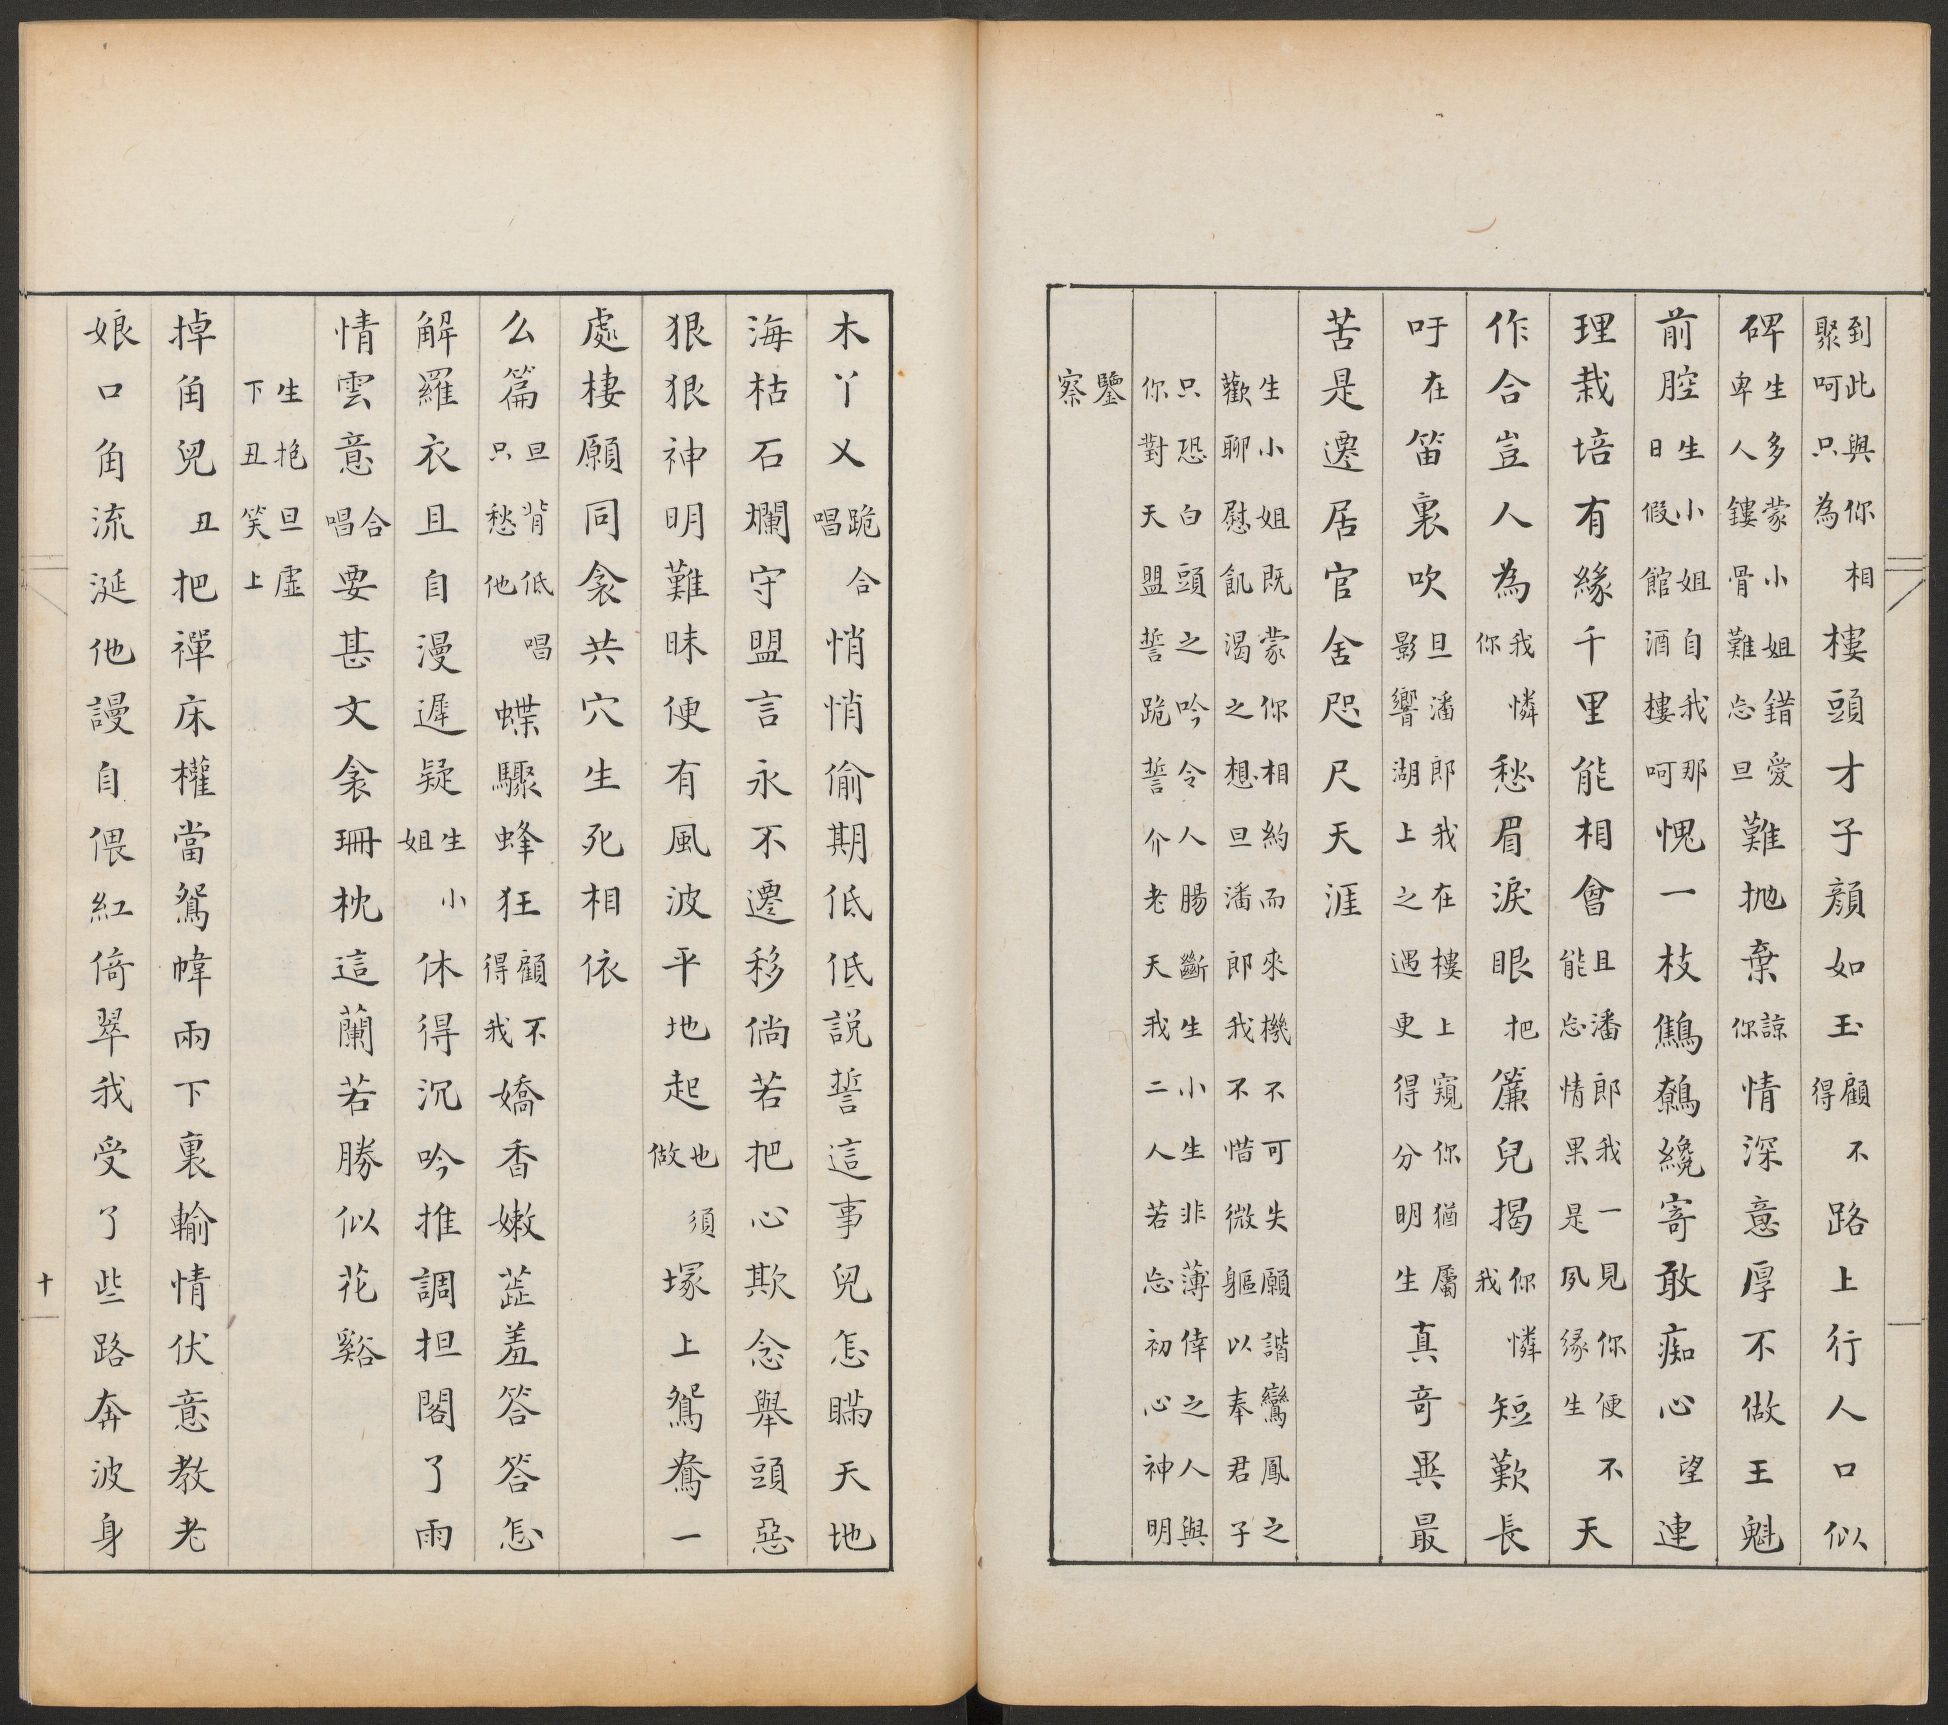 到此與你相聚呵只為樓頭才子顏如玉顧不得路上行人口似
碑生多蒙小姐錯愛卑人鏤骨難忘旦難拋棄諒你情深意厚不做王魁
前腔生小姐自我那日假館酒樓呵愧一枝鷦鷯纔寄敢痴心望連
理栽培有緣千里能相會且潘郎我一見你便不能忘情果是夙緣生天
作合豈人為我憐你愁眉淚眼把簾兒揭你憐我短歎長
吁在笛裏吹旦潘郎我在樓上窺你猶屬影響湖上之遇更得分明生真奇異最
苦是遷居官舍咫尺天涯
生小姐既蒙你相約而來機不可失願諧鸞鳳之歡聊慰飢渴之想旦潘郎我不惜微軀以奉君子
只恐白頭之吟令人腸斷生小生非薄倖之人與你對天盟誓跪誓介老天我二人若忘初心神明
鑒察
木丫乂跪合唱悄悄偷期低低說誓這事兒怎瞞天地
海枯石爛守盟言永不遷移倘若把心欺念舉頭惡
狠狠神明難昧便有風波平地起也須做塚上鴛鴦一
處棲願同衾共穴生死相依
么篇旦背低唱只愁他蝶驟蜂狂顧不得我嬌香嫩蕋羞答答怎
解羅衣且自漫遲疑生小姐休得沉吟推調担閣了雨
情雲意合唱要甚文衾珊枕這蘭若勝似花谿
生抱旦虛下丑笑上
掉角兒丑把禪床權當鴛幃兩下裏輸情伏意教老
娘口角流涎他謾自偎紅倚翠我受了些路奔波身
十